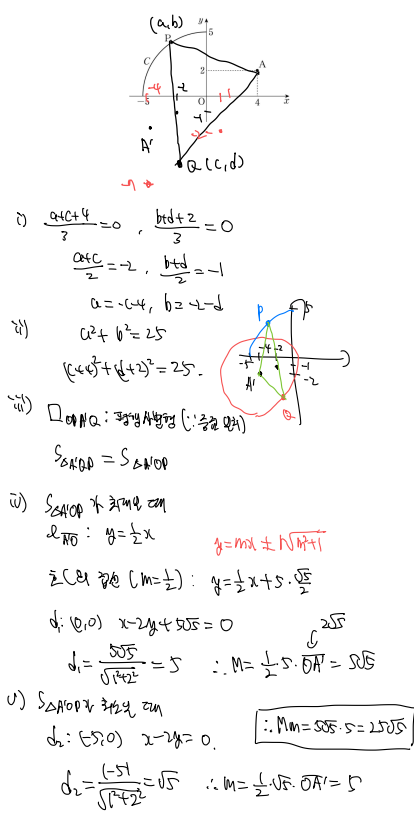 (a,b)
y
5
P
C
2
A
-5
-4
-2
O
4
x
-1
-2
A'
Q (c,d)
i) (a+c+4)/3=0 , (b+d+2)/3=0
(a+c)/2=-2, (b+d)/2=-1
a=-c-4, b=-2-d
ii) a²+b²=25
(c+4)²+(d+2)²=25.
P
5
-5 -4 -2
-1
-2
A'
Q
iii) □OPA'Q : 평행사변형 (∵ 중점 일치)
S△A'QP = S△A'OP
iv) S△A'OP가 최대일 때
l AO : y=½x
y=mx±r√m²+1
호C의 접선 (m=½) : y=½x+5·√5/2
d₁: (0,0) x-2y+5√5=0
2√5
d₁=5√5/√1²+2²=5 ∴M=½·5·OA'=5√5
v) S△A'OP가 최소일 때
d₂: (-5,0) x-2y=0.
∴Mm=5√5·5=25√5
d₂=|-5|/√1²+2²=√5 ∴m=½·√5·OA'=5